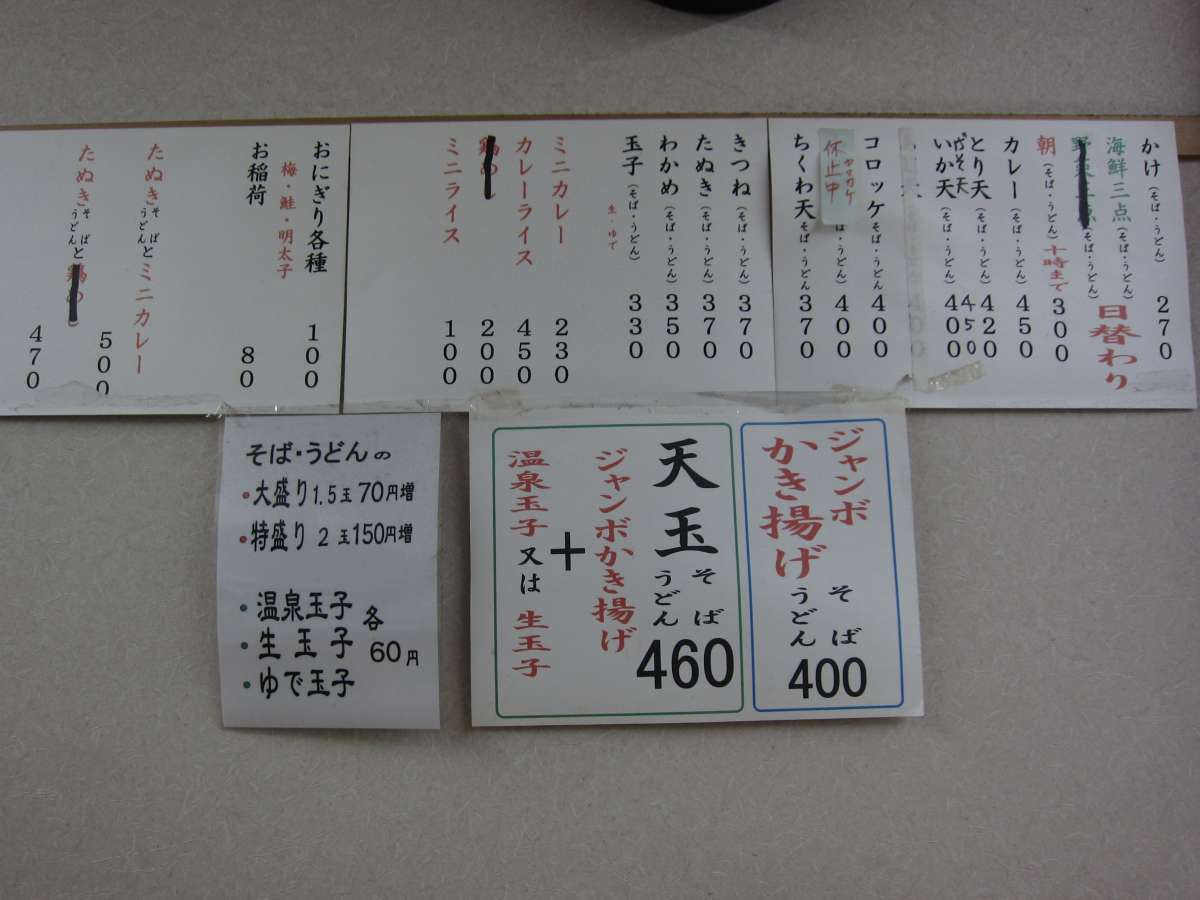 かけ(そば・うどん) 270
海鮮三点(そば・うどん) 日替わり
三点(そば・うどん)
朝(そば・うどん)十時まで 300
カレー(そば・うどん) 450
とり天(そば・うどん) 420
450
いか天(そば・うどん) 400
コロッケそば・うどん 400
休止中
(そば・うどん) 400
ちくわ天そば・うどん 370
きつね(そば・うどん) 370
たぬき(そば・うどん) 370
わかめ(そば・うどん) 350
玉子(そば・うどん) 330
生・ゆで
ミニカレー 230
カレーライス 450
200
ミニライス 100
おにぎり各種 100
梅・鮭・明太子
お稲荷 80
たぬきそばうどんとミニカレー 500
たぬきそばうどんと 470
そば・うどんの
・大盛り1.5玉70円増
・特盛り 2 玉150円増
・温泉玉子
・生玉子 各60円
・ゆで玉子
ジャンボ
かき揚げそばうどん
400
天玉そばうどん
460
ジャンボかき揚げ
+
温泉玉子又は生玉子